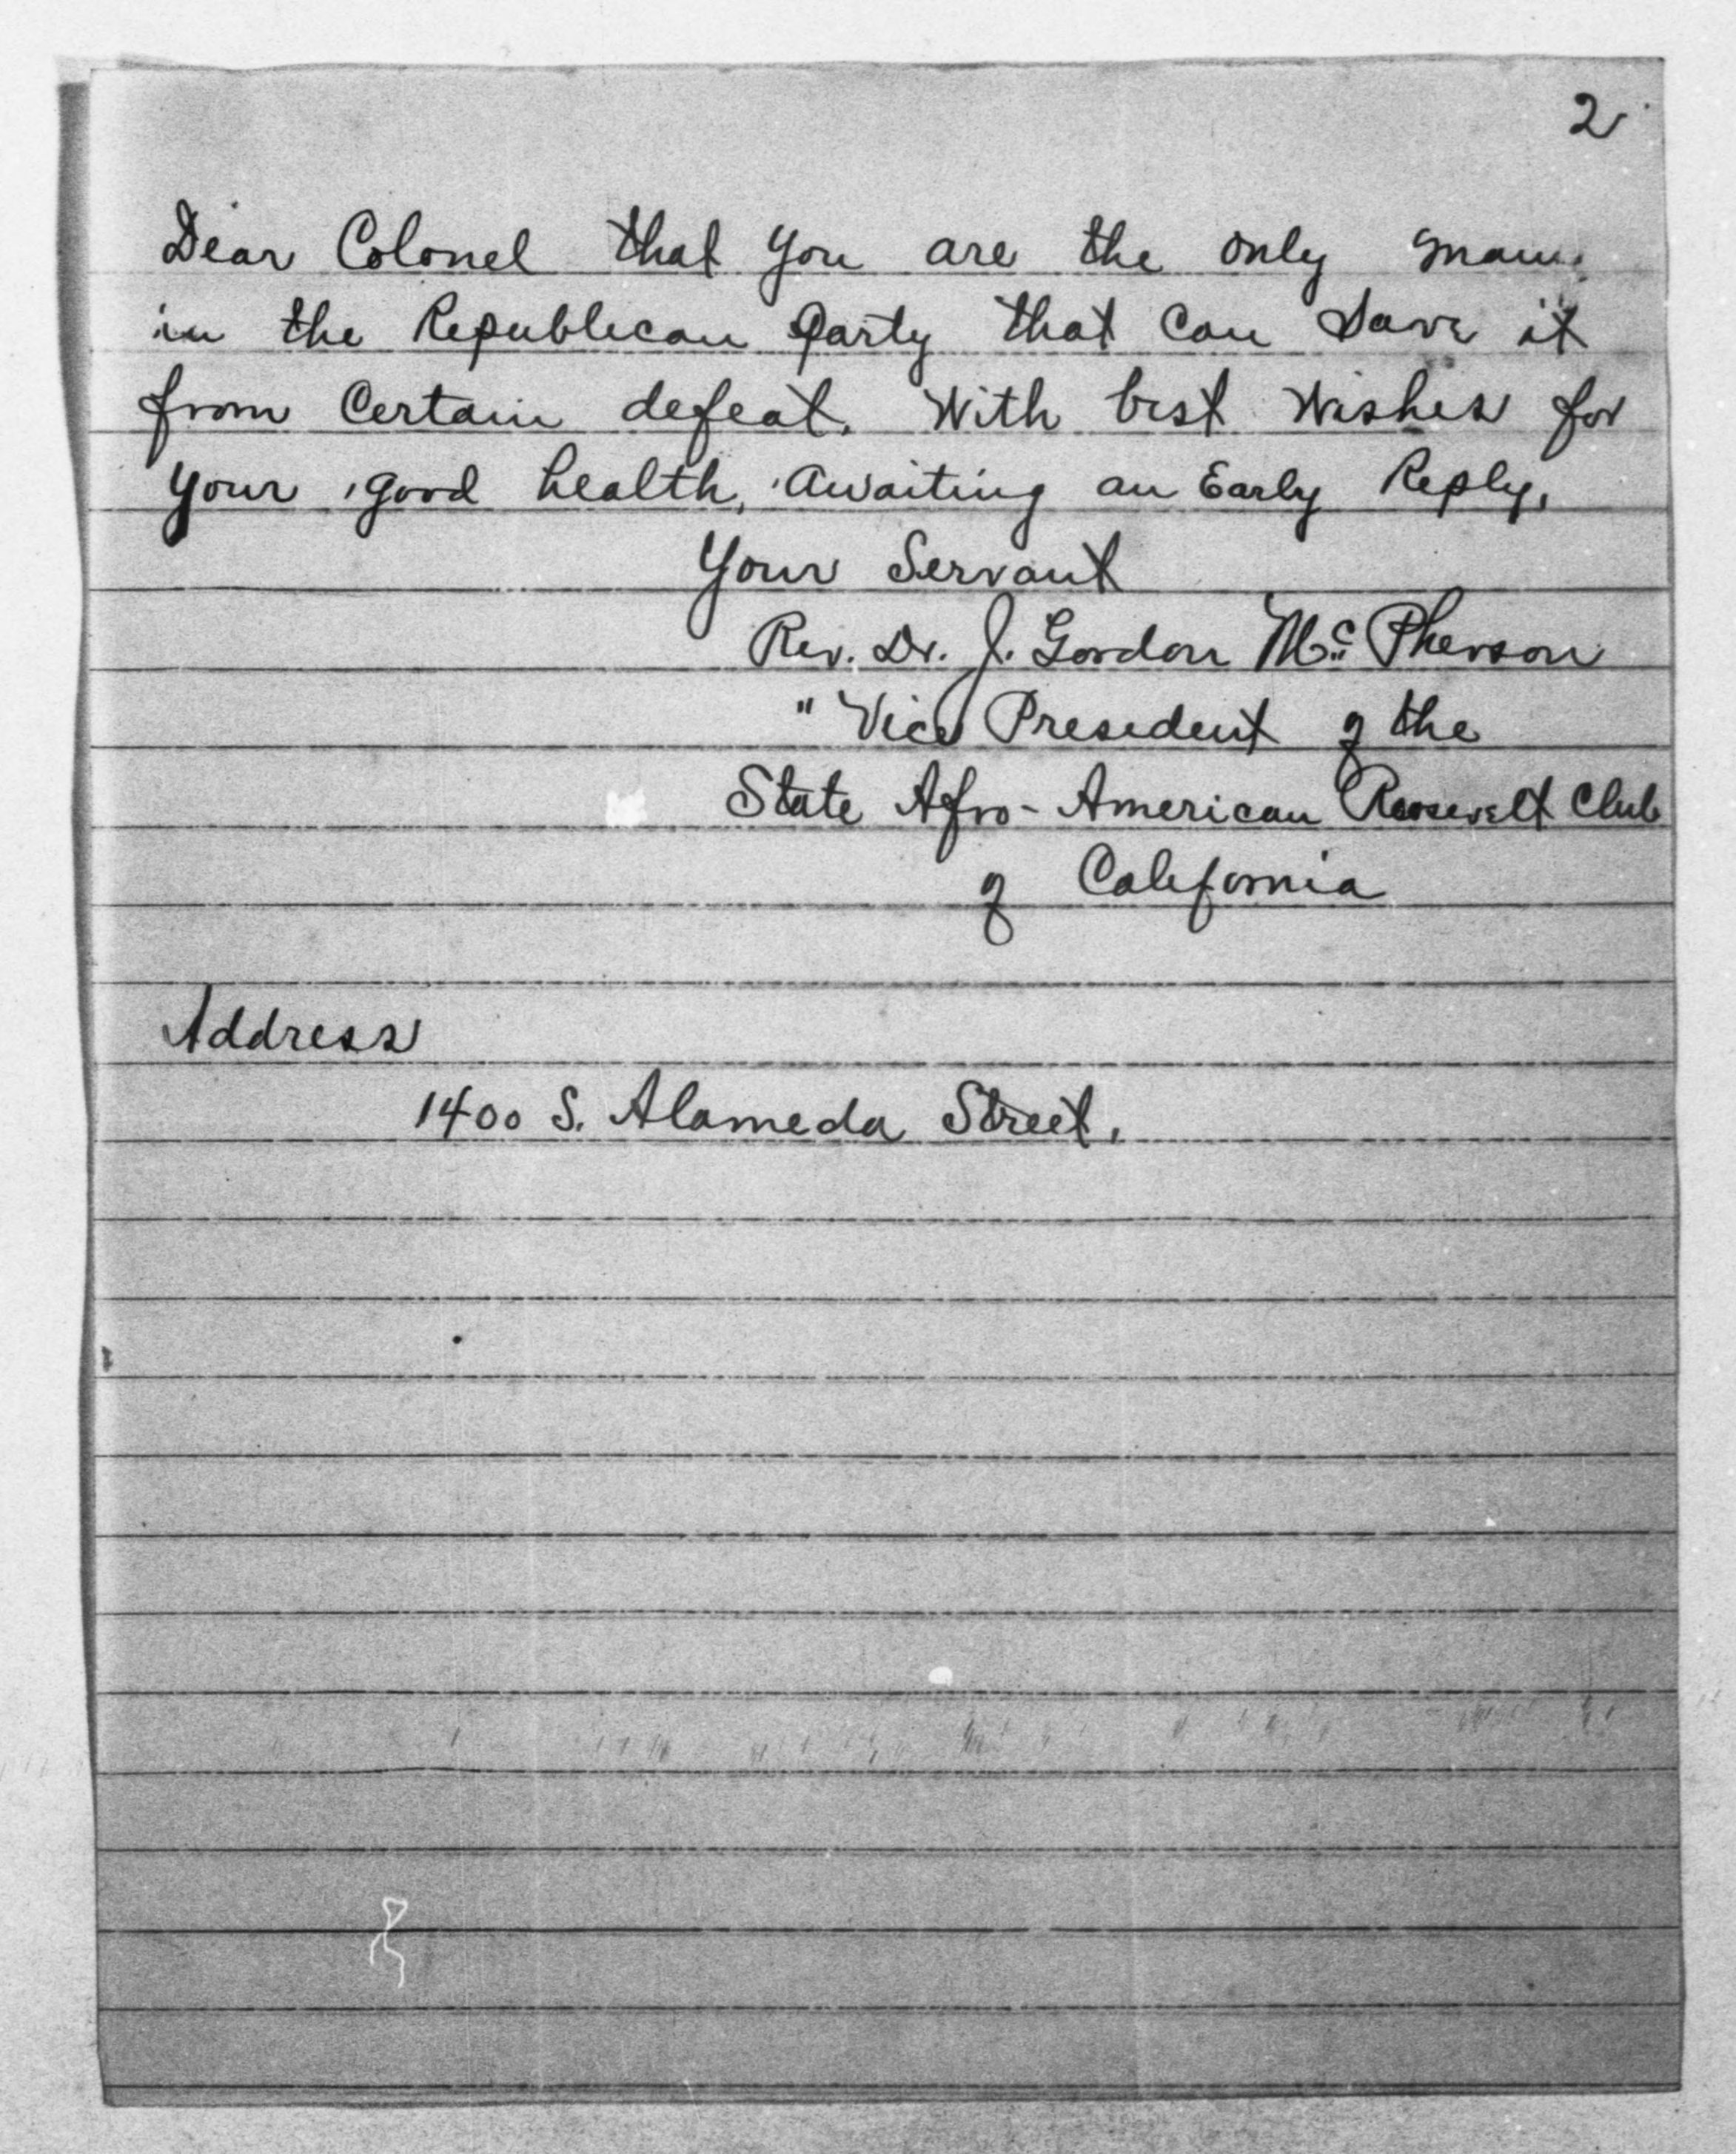 2
Dear Colonel that you are the only man
in the Republican Party that can save it
from Certain defeat. With best Wishes for
your good health, Awaiting an Early Reply,
Your Servant
Rev. Dr. J. Gordon McPherson
" Vice President of the
State Afro-American Roosevelt Club
of California
Address
1400 S. Alameda Street.